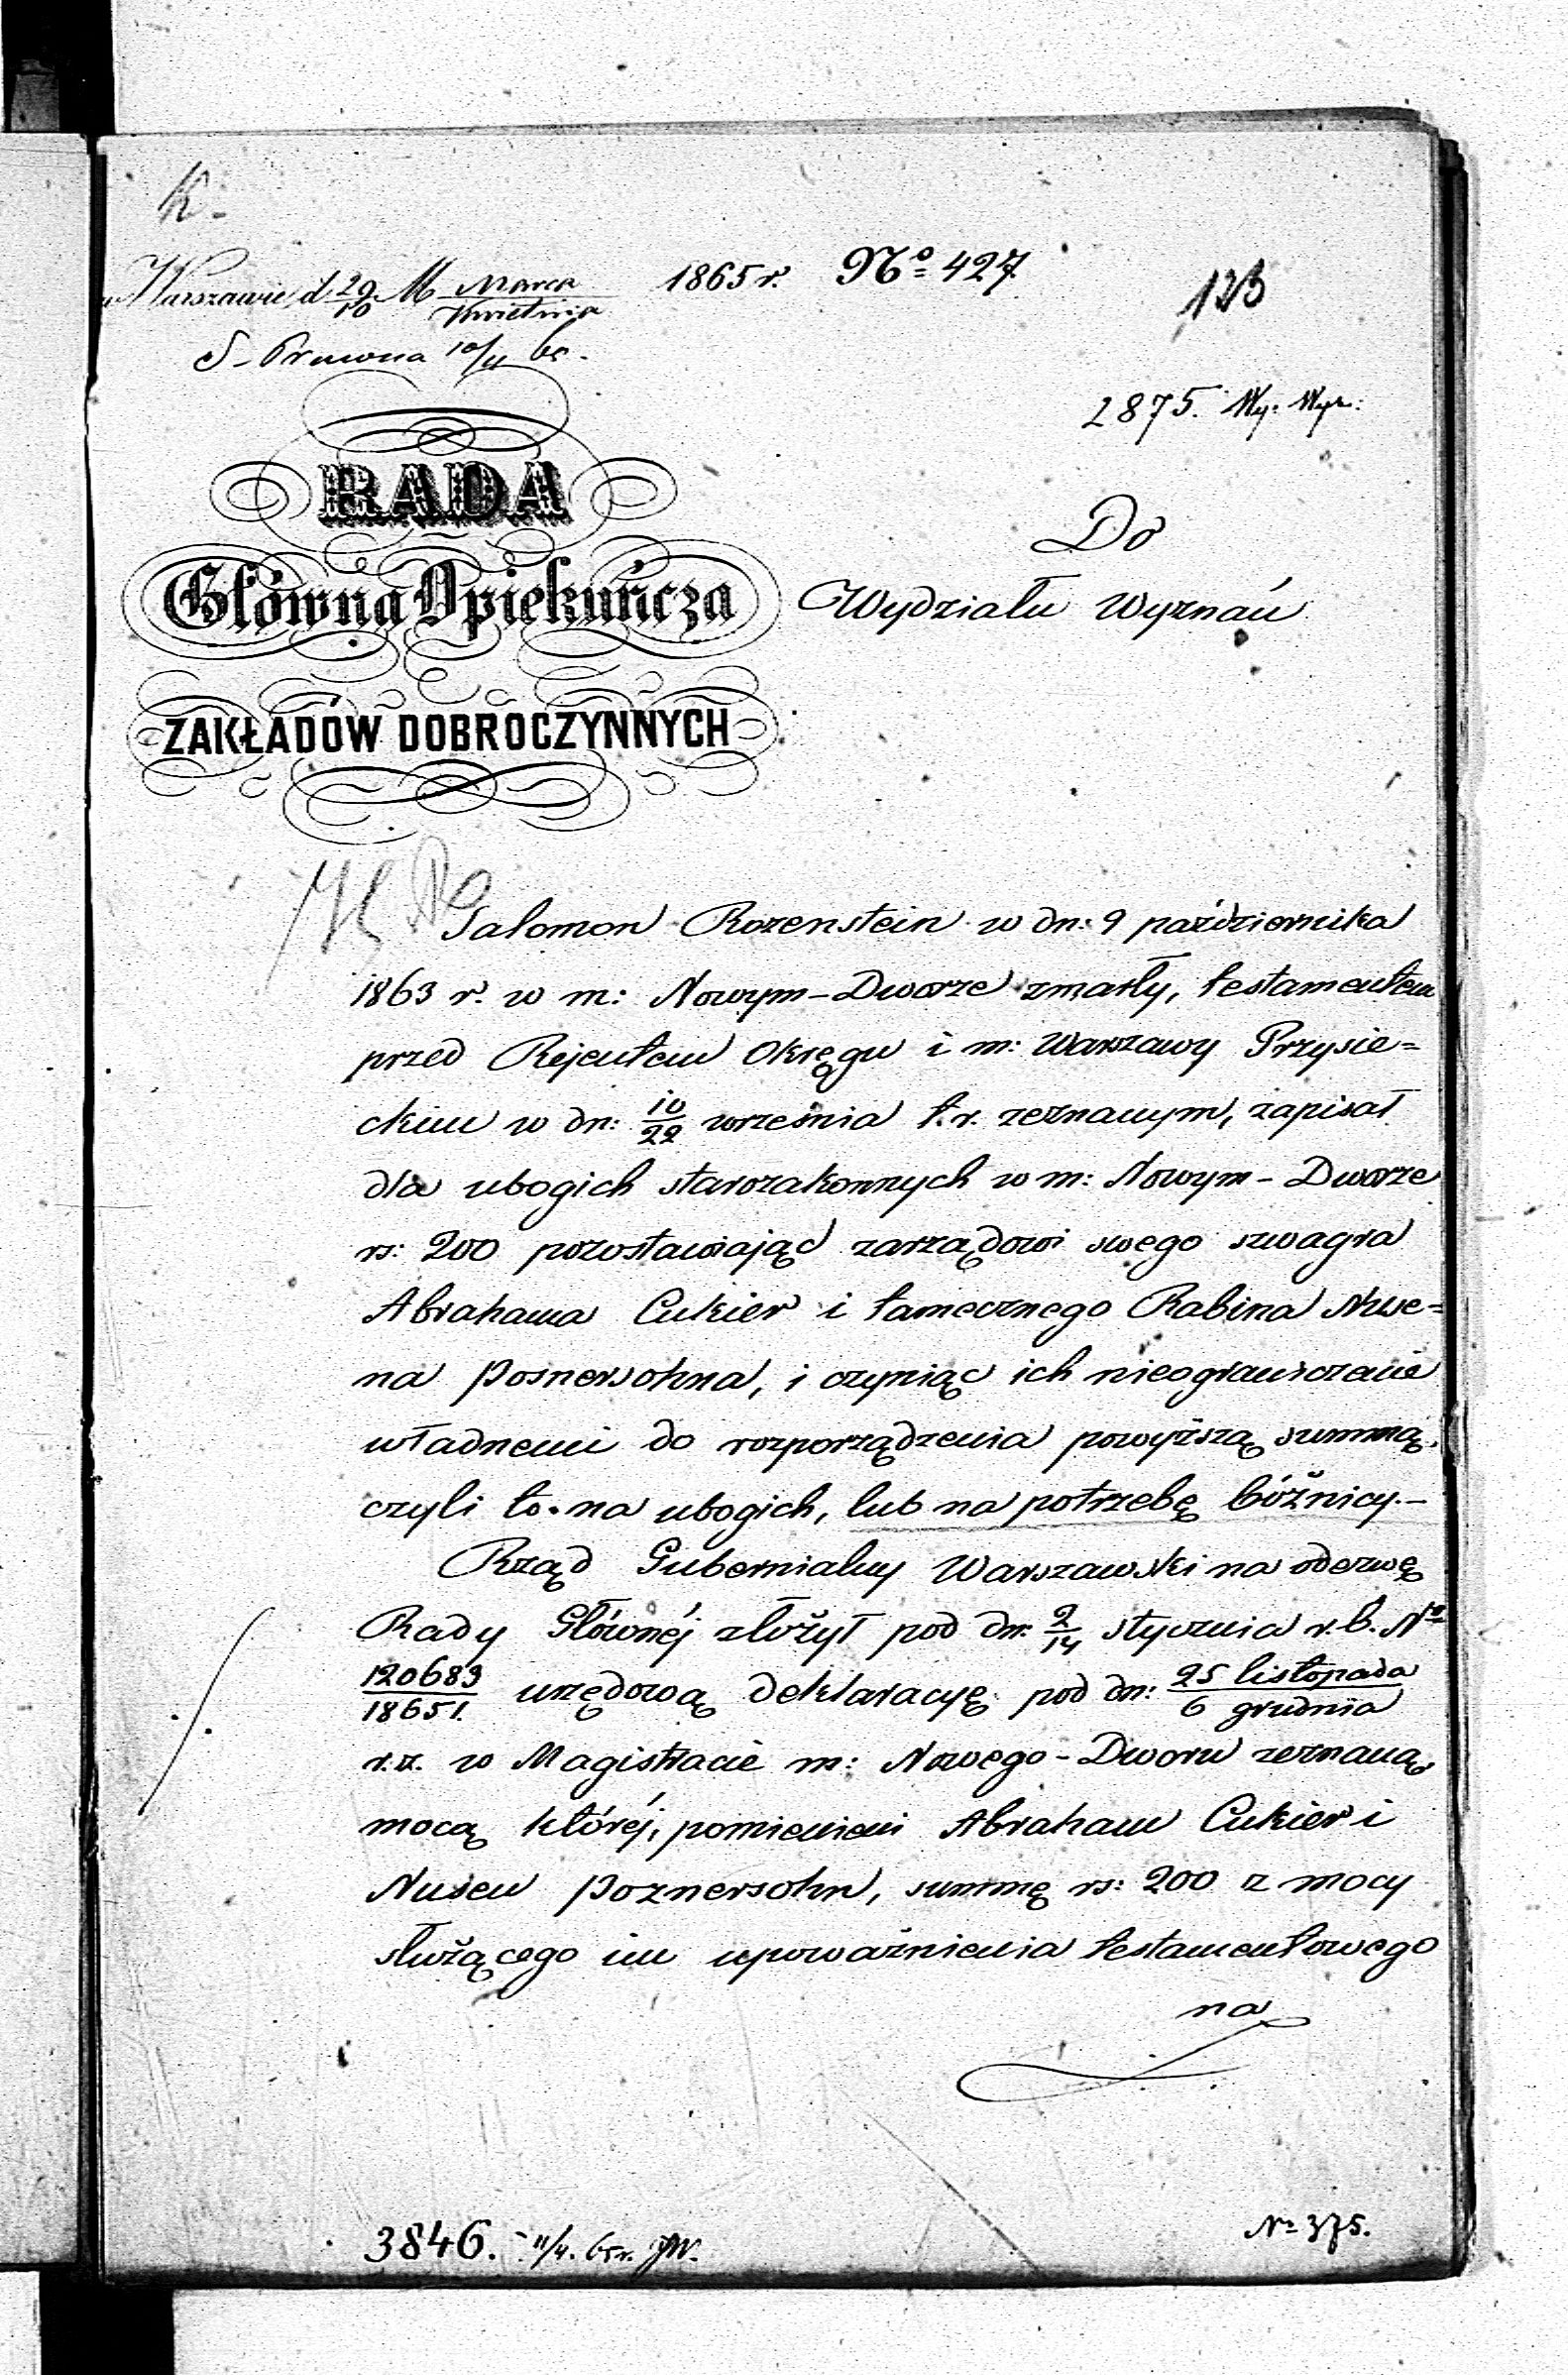 K.
w Warszawie d 29/10 M Marca/Kwietnia 1865 r. No 427
123
S. Prawna 10/4 65.
2875. Wy: Wyz:
RADA
Główna Opiekuńcza
ZAKŁADÓW DOBROCZYNNYCH
Do
Wydziału Wyznań
Salomon Rozenstein w dn: 9 października
1863 r. w m: Nowym-Dworze zmarły, testamentem
przed Rejentem Okręgu i m: Warszawy Przysie=
ckim w dn: 10/22 września t.r. zeznanym, zapisał
dla ubogich starozakonnych w m: Nowym-Dworze
rs: 200 pozostawiając zarządowi swego szwagra
Abrahama Cukier i tamecznego Rabina Nuse=
na Posnersohna, i czyniąc ich nieograniczenie
władnemi do rozporządzenia powyższą summą,
czyli to na ubogich, lub na potrzebę bóżnicy.-
Rząd Gubernialny Warszawski na odezwę
Rady Głównéj złożył pod dn: 2/14 stycznia r.b. No
120689/18651. urzędową deklaracyę pod dn: 25 listopada/6 grudnia
r.z. w Magistracie m: Nowego-Dworu zeznaną,
mocą któréj, pomienieni Abraham Cukier i
Nusen Poznersohn, summę rs: 200 z mocy
służącego im upoważnienia testamentowego
na
3846. 11/4. 65 r. JW.
No 375.